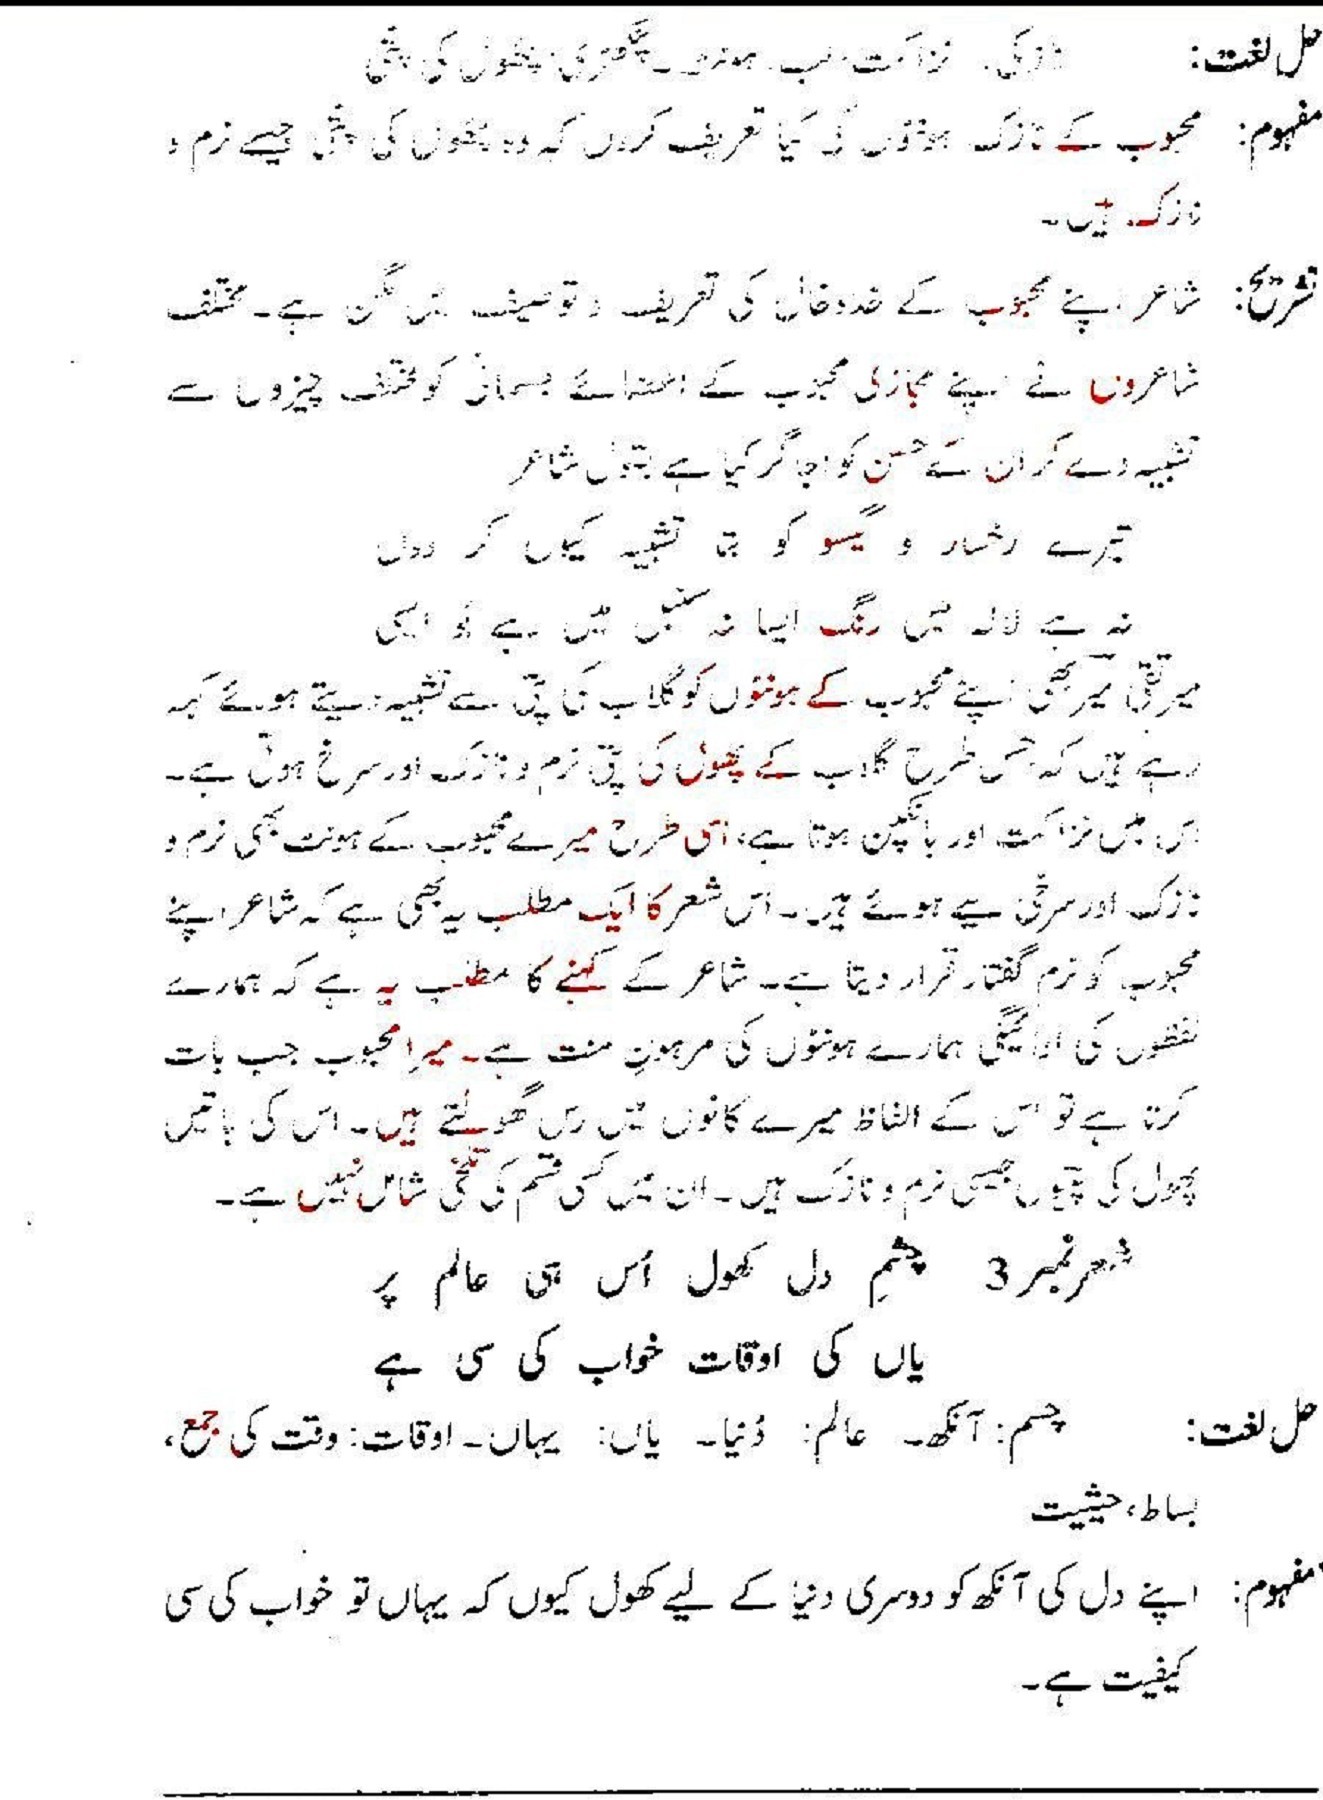 حل لغت: نازکی: نزاکت۔ لب: ہونٹ۔ پنکھڑی: پھول کی پتی
مفہوم: محبوب کے نازک ہونٹوں کی کیا تعریف کروں کہ وہ پھول کی پتی جیسے نرم و
نازک ہیں۔
تشریح: شاعر اپنے محبوب کے خدوخال کی تعریف و توصیف میں مگن ہے۔ مختلف
شاعروں نے اپنے مجازی محبوب کے اعضائے جسمانی کو مختلف چیزوں سے
تشبیہ دے کر ان کے حسن کو اجاگر کیا ہے بقول شاعر
تیرے رخسار و گیسو کو بتا تشبیہ کیوں کر دوں
نہ ہے لالہ میں رنگ ایسا نہ سنبل میں ہے بُو ایسی
میر تقی میر بھی اپنے محبوب کے ہونٹوں کو گلاب کی پتی سے تشبیہ دیتے ہوئے کہہ
رہے ہیں کہ جس طرح گلاب کے پھول کی پتی نرم و نازک اور سرخ ہوتی ہے۔
اس میں نزاکت اور بانکپن ہوتا ہے، اسی طرح میرے محبوب کے ہونٹ بھی نرم و
نازک اور سرخی لیے ہوئے ہیں۔ اس شعر کا ایک مطلب یہ بھی ہے کہ شاعر اپنے
محبوب کو نرم گفتار قرار دیتا ہے۔ شاعر کے کہنے کا مطلب یہ ہے کہ ہمارے
لفظوں کی ادائیگی ہمارے ہونٹوں کی مرہونِ منت ہے۔ میرا محبوب جب بات
کرتا ہے تو اس کے الفاظ میرے کانوں میں رس گھولتے ہیں۔ اس کی باتیں
پھول کی پتیوں جیسی نرم و نازک ہیں۔ ان میں کسی قسم کی تلخی شامل نہیں ہے۔
شعر نمبر 3 چشمِ دل کھول اُس ہی عالم پر
یاں کی اوقات خواب کی سی ہے
حل لغت: چشم: آنکھ۔ عالم: دُنیا۔ یاں: یہاں۔ اوقات: وقت کی جمع،
بساط، حیثیت
مفہوم: اپنے دل کی آنکھ کو دوسری دنیا کے لیے کھول کیوں کہ یہاں تو خواب کی سی
کیفیت ہے۔